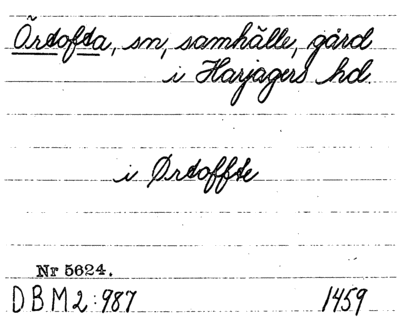 Örtofta, sn, samhälle, gård
i Harjagers hd.
i Ørtoffte
Nr 5624.
DBM2:987 1459